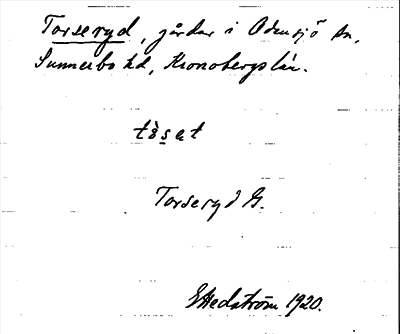 Torseryd, gårdar i Odensjö sn,
Sunnerbo hd, Kronobergs län.
tò̀sat
Torseryd G.
G Hedström 1920.